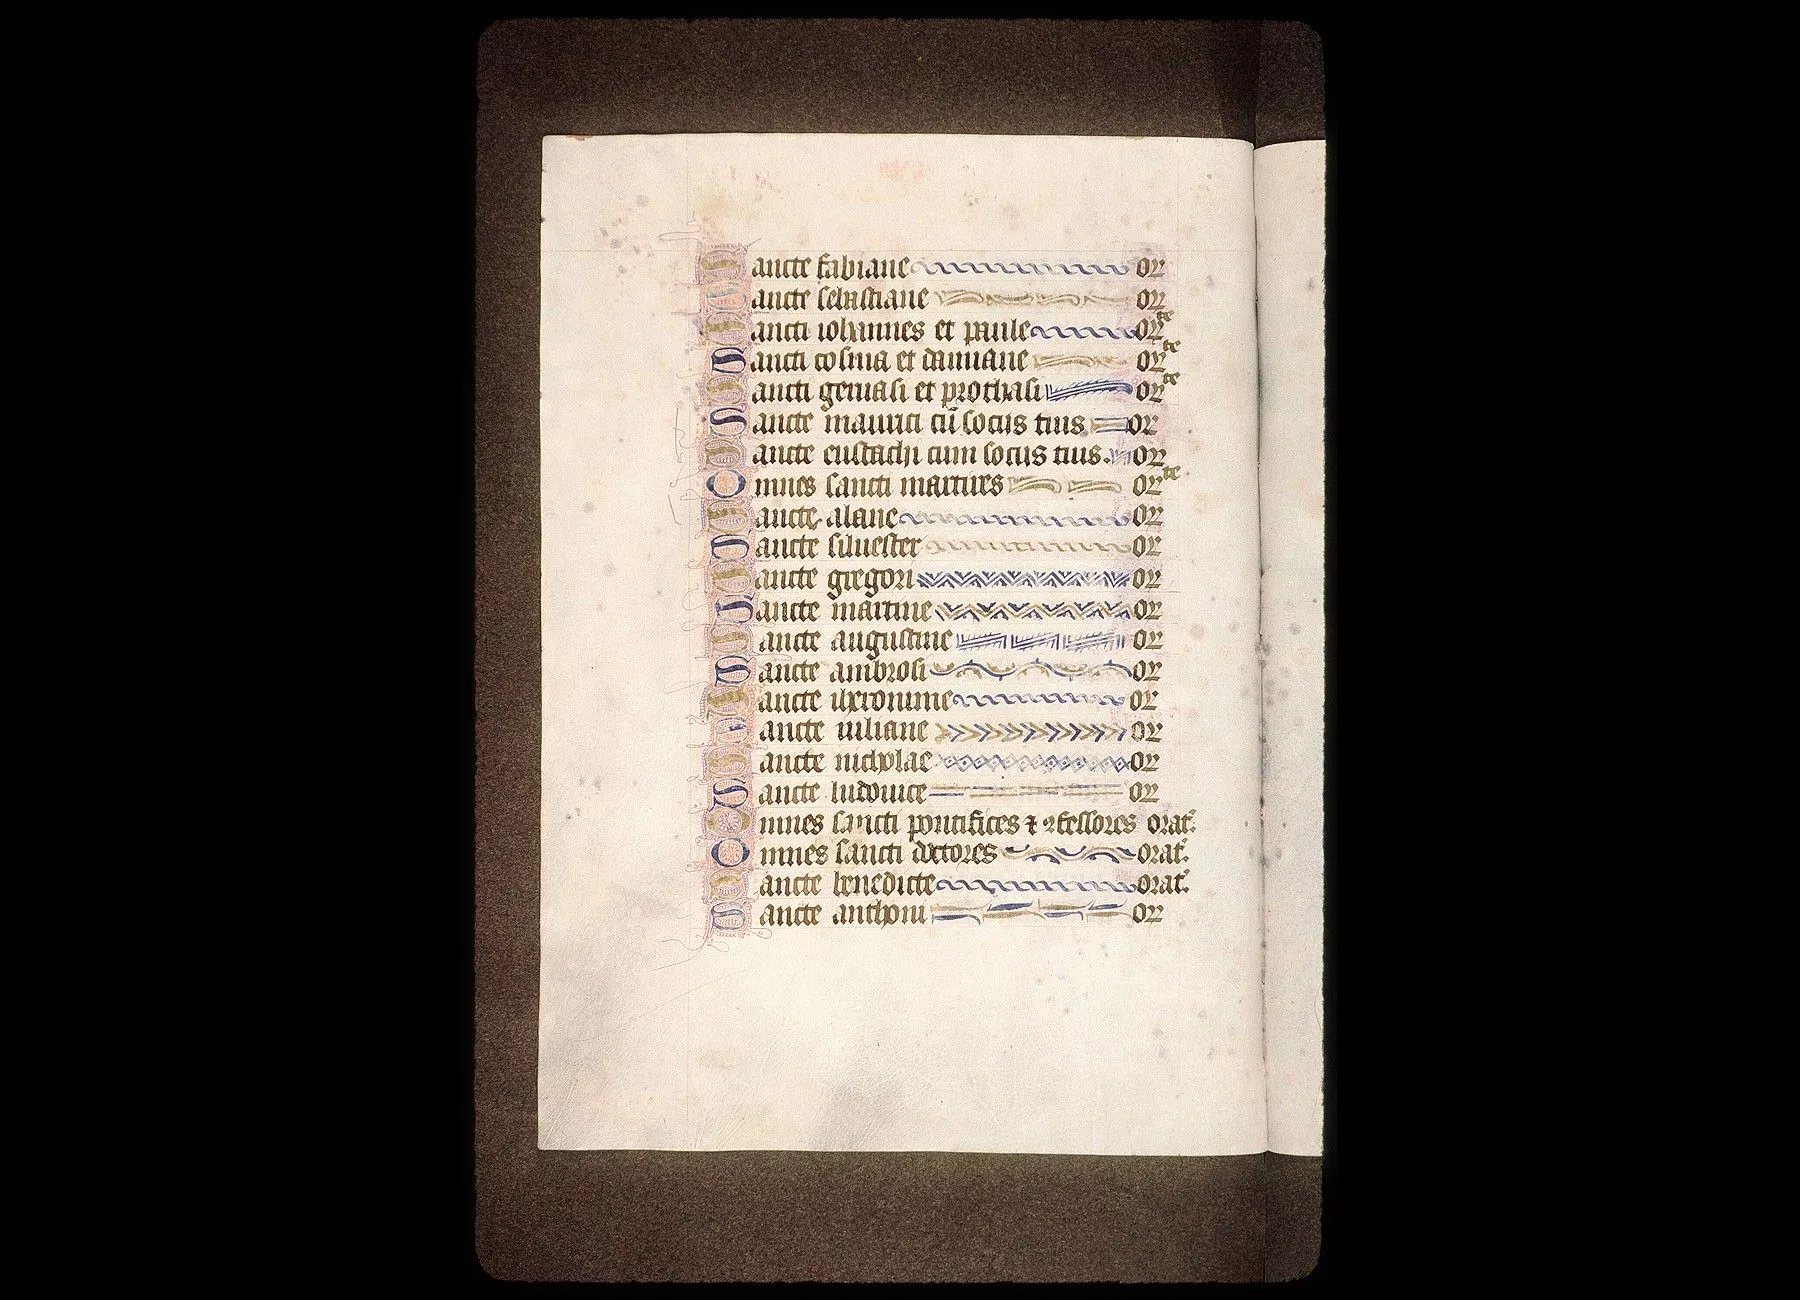 Sancte fabiane or
Sancte sebastiane or
Sancti iohannes et paule orte
Sancti cosma et damiane orte
Sancti geruasi et prothasi orte
Sancte maurici cū sociis tuis or
Sancte eustachi cum sociis tuis. or
Omnes sancti martires orte
Sancte alane or
Sancte siluester or
Sancte gregori or
Sancte martine or
Sancte augustine or
Sancte ambrosi or
Sancte iheronime or
Sancte iuliane or
Sancte nicholae or
Sancte ludouice or
Omnes sancti pontifices ⁊ ꝯfessores orat.
Omnes sancti doctores orat.
Sancte benedicte orat.
Sancte anthoni or